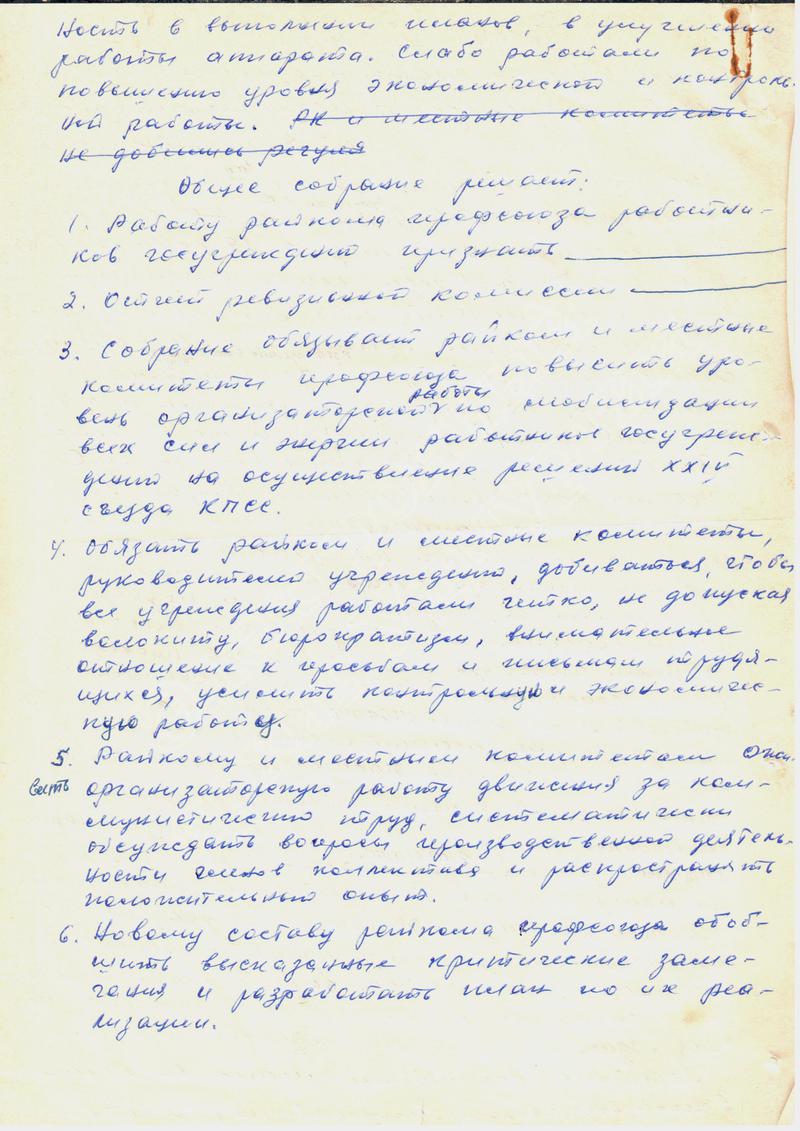 ность в выполнении планов, в улучшении
работы аппарата. Слабо работали по
повышению уровня экономической и контроль-
ной работы. РК и местные комитеты
не добились регуля
Общее собрание решает:
1. Работу райкома профсоюза работни-
ков госучреждений признать
2. Отчет ревизионной комиссии
3. Собрание обязывает райком и местные
комитеты профсоюза повысить уро-
вень организаторской работы по мобилизации
всех сил и энергии работников госучреж-
дений на осуществление решений XXIV
съезда КПСС.
4. Обязать райком и местные комитеты,
руководителей учреждений, добиваться, чтобы
все учреждения работали четко, не допуская
волокиту, бюрократизм, внимательное
отношение к просьбам и письмам трудя-
щихся, усилить контрольную и экономичес-
кую работу.
5. Райкому и местным комитетам ожи-
вить организаторскую работу движения за ком-
мунистический труд, систематически
обсуждать вопросы производственной деятель-
ности членов коллектива и распространять
положительный опыт.
6. Новому составу райкома профсоюза обоб-
щить высказанные критические заме-
чания и разработать план по их реа-
лизации.